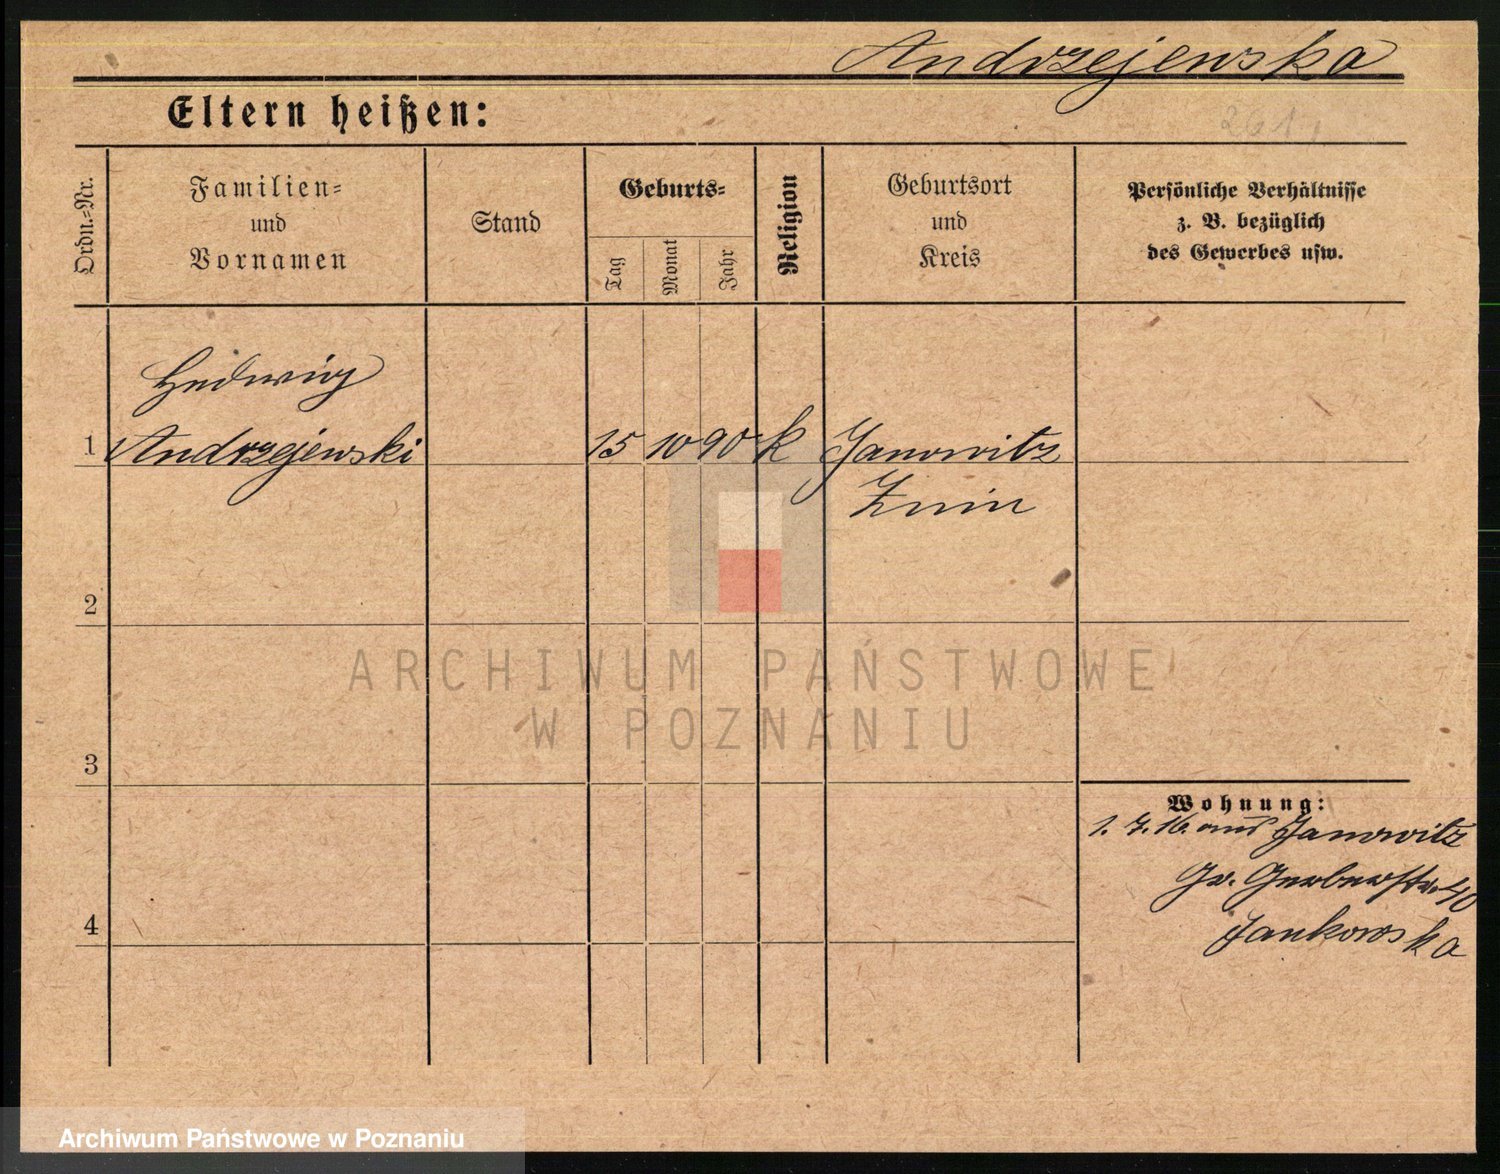 Andrzejewska
Eltern heißen:
261
Ordn.-Nr.
Familien-
und
Vornamen
Stand
Geburts-
Tag
Monat
Jahr
Religion
Geburtsort
und
Kreis
Persönliche Verhältnisse
z. B. bezüglich
des Gewerbes usw.
Hedwig
1 Andrzejewski 15 10 90 k Janowitz
Znin
2
ARCHIWUM PAŃSTWOWE
W POZNANIU
3
Wohnung:
1. 7. 16. aus Janowitz
Gr. Gerberstr. 40
4
Jankowska
Archiwum Państwowe w Poznaniu